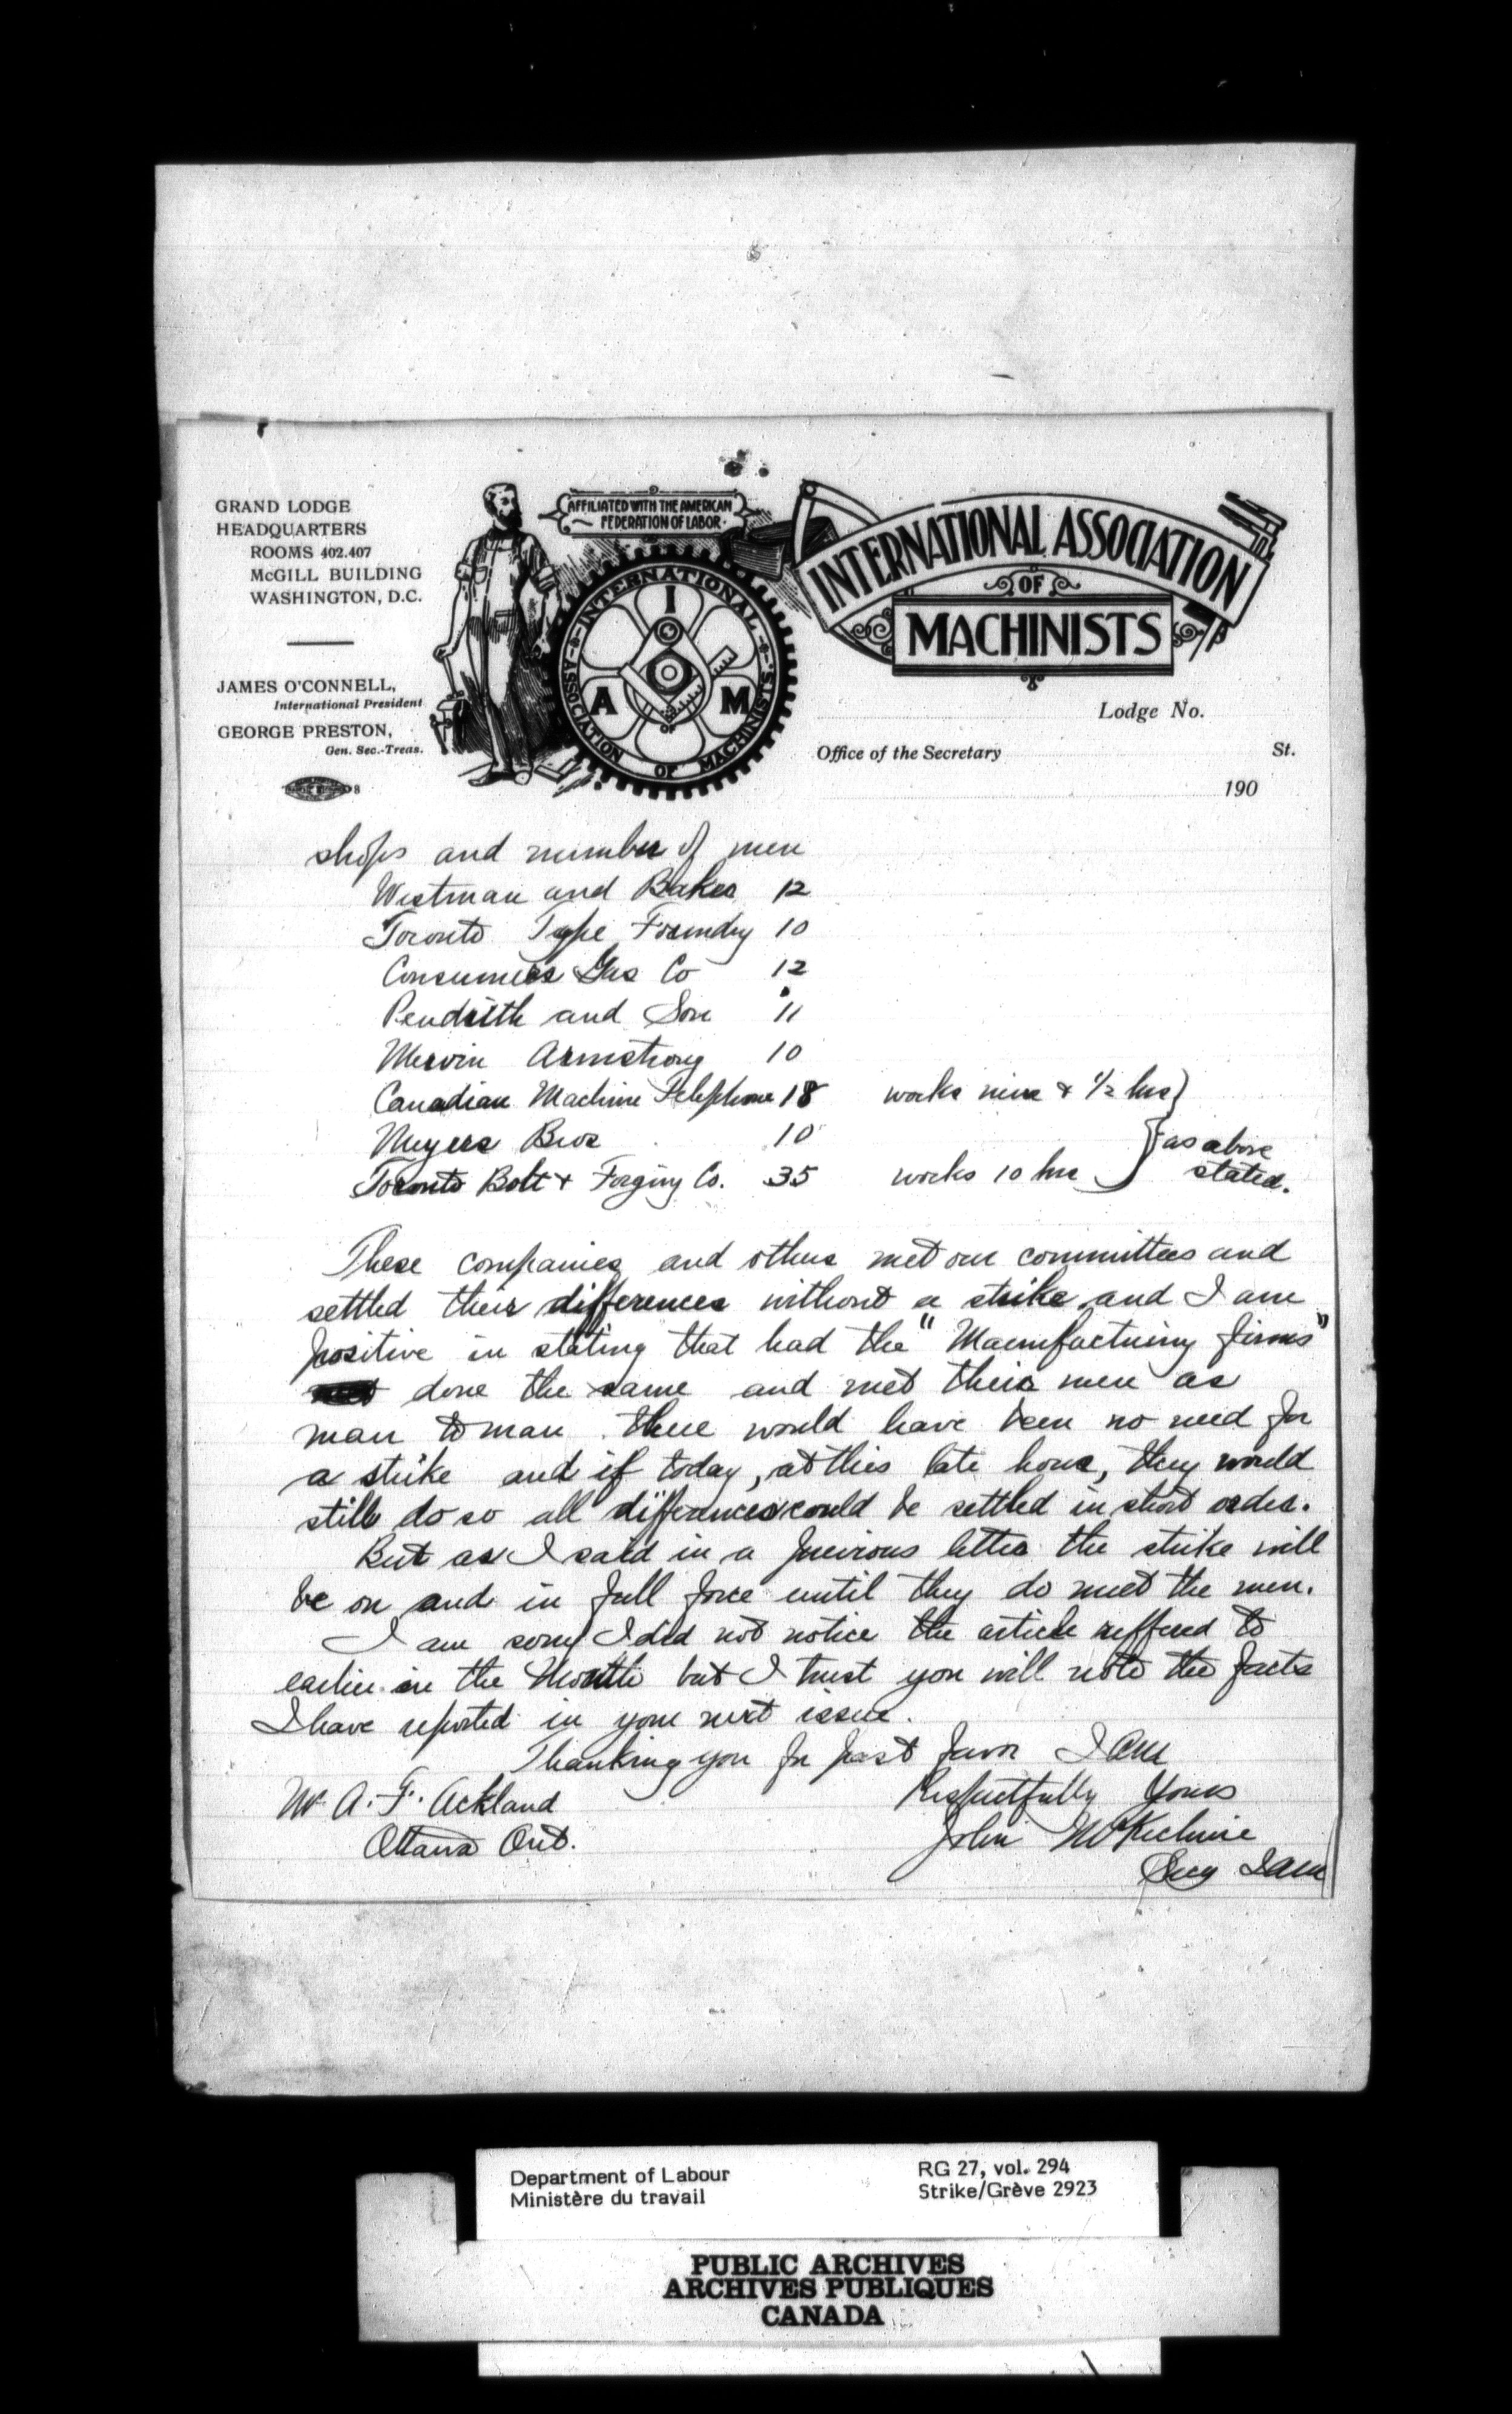 GRAND LODGE
HEADQUARTERS
ROOMS 402.407
McGILL BUILDING
WASHINGTON, D.C.
JAMES O'CONNELL,
International President
GEORGE PRESTON,
Gen. Sec.-Treas.
8
AFFILIATED WITH THE AMERICAN
FEDERATION OF LABOR.
INTERNATIONAL ASSOCIATION OF MACHINISTS.
I A M
INTERNATIONAL ASSOCIATION
OF
MACHINISTS
Lodge No.
Office of the Secretary St.
190
shops and number of men
Westman and Baker 12
Toronto Type Foundry 10
Consumers Gas Co 12
Pendrith and Son 11
Mervin Armstrong 10
Canadian Machine Telephone 18 works nine & 1/2 hrs }
Meyers Bros 10 } as above
Toronto Bolt & Forging Co. 35 works 10 hrs stated.
These companies and others met our committees and
settled their differences without a strike and I am
positive in stating that had the "Manufacturing firms"
done the same and met their men as
man to man there would have been no need for
a strike and if today, at this late hour, they would
still do so all differances could be settled in short order.
But as I said in a previous letter the strike will
be on and in full force until they do meet the men.
I am sorry I did not notice the article reffered to
earlier in the Month but I trust you will note the facts
I have reported in your next issue.
Thanking you for past favor I Am
Mr A. F. Ackland Respectfully Yours
Ottawa Ont. John McKechnie
Secy I A M
Department of Labour RG 27, vol. 294
Ministère du travail Strike/Grève 2923
PUBLIC ARCHIVES
ARCHIVES PUBLIQUES
CANADA